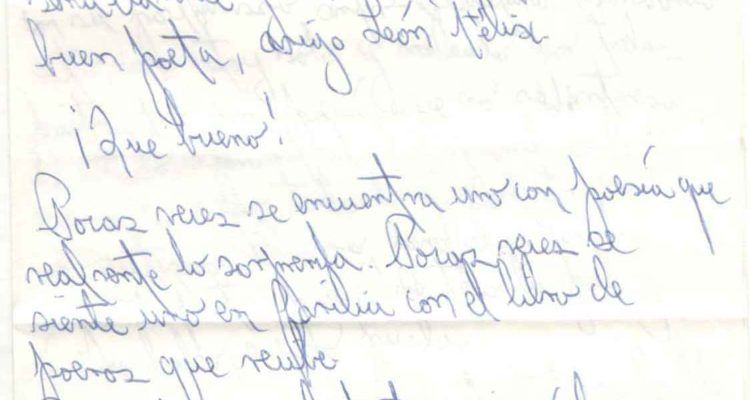 buen poeta, amigo León Félix.
¡Que bueno!
Pocas veces se encuentra uno con poesía que
realmente lo sorprenda. Pocas veces se
siente uno en familia con el libro de
poemas que recibe.